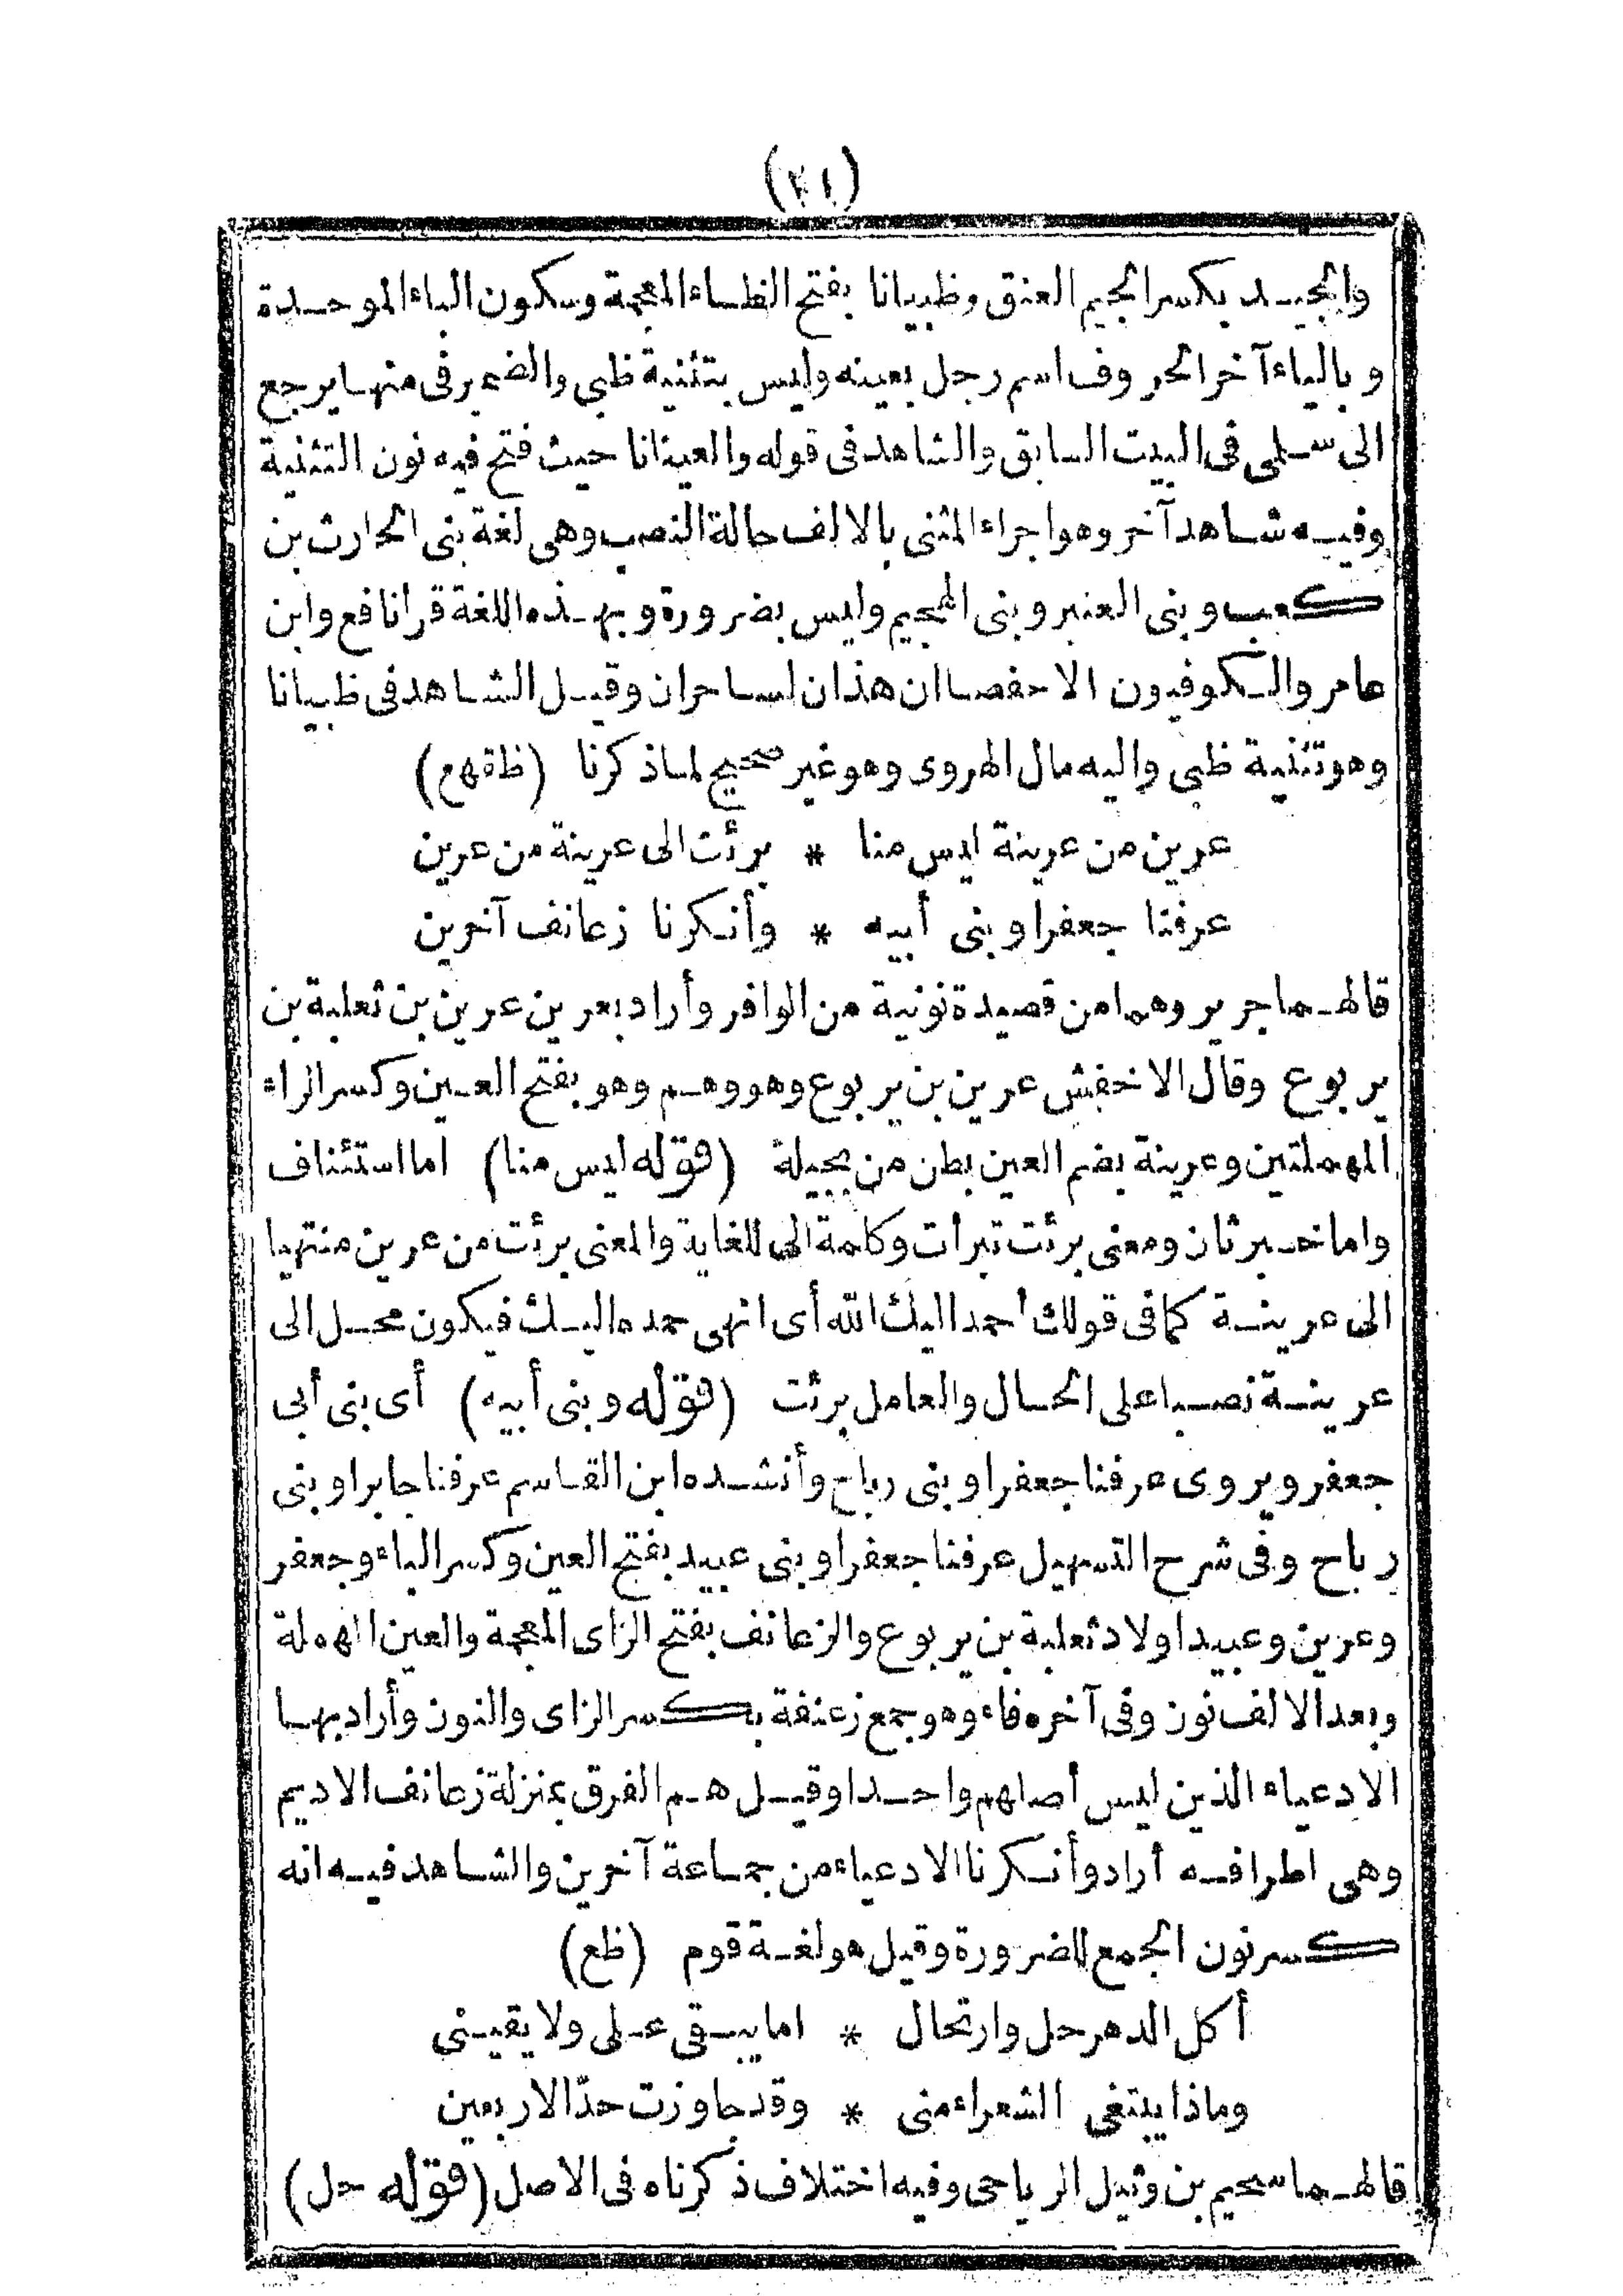 (٢١)
والجيد بكسر الجيم العنق وظبيانا بفتح الظاء المعجمة وسكون الباء الموحدة
وبالياء آخر الحروف اسم رجل بعينه وليس بتثنية ظبي والضمير في منها يرجع
الى سلمى فى البيت السابق والشاهد فى قوله والعينانا حيث فتح فيه نون التثنية
وفيه شاهد آخر وهو اجراء المثنى بالالف حالة النصب وهى لغة بنى الحارث بن
كعب وبنى العنبر وبنى الهجيم وليس بضرورة وبهذه اللغة قرا نافع وابن
عامر والكوفيون الا حفصا ان هذان لساحران وقيل الشاهد فى ظبيانا
وهو تثنية ظبى واليه مال الهروى وهو غير صحيح لما ذكرنا (ظقهع)
عرين من عرينة ليس منا * برئت الى عرينة من عرين
عرفنا جعفرا وبنى أبيه * وأنكرنا زعانف آخرين
قالهما جرير وهما من قصيدة نونية من الوافر وأراد بعرين عرين بن ثعلبة بن
يربوع وقال الاخفش عرين بن يربوع وهو وهم وهو بفتح العين وكسر الراء
المهملتين وعرينة بضم العين بطن من بجيلة (قوله ليس منا) اما استئناف
واما خبر ثان ومعنى برئت تبرأت وكلمة الى للغاية والمعنى برئت من عرين منتهيا
الى عرينة كما فى قولك أحمد اليك الله أى انهى حمده اليك فيكون محل الى
عرينة نصبا على الحال والعامل برئت (قوله وبنى أبيه) أى بنى أبى
جعفر ويروى عرفنا جعفرا وبنى رياح وأنشده ابن القاسم عرفنا جابرا وبنى
رباح وفى شرح التسهيل عرفنا جعفرا وبنى عبيد بفتح العين وكسر الباء وجعفر
وعرين وعبيد اولاد ثعلبة بن يربوع والزعانف بفتح الزاى المعجمة والعين المهملة
وبعد الالف نون وفى آخره فاء وهو جمع زعنفة بكسر الزاى والنون وأراد بها
الادعياء الذين ليس أصلهم واحدا وقيل هم الفرق بمنزلة زعانف الاديم
وهى اطرافه أراد وأنكرنا الادعياء من جماعة آخرين والشاهد فيه انه
كسر نون الجمع للضرورة وقيل هو لغة قوم (ظع)
أكل الدهر حل وارتحال * اما يبقى على ولا يقينى
وماذا يبتغى الشعراء منى * وقد جاوزت حدّ الاربعين
قالهما سحيم بن وثيل الرياحى وفيه اختلاف ذكرناه فى الاصل (قوله حل)